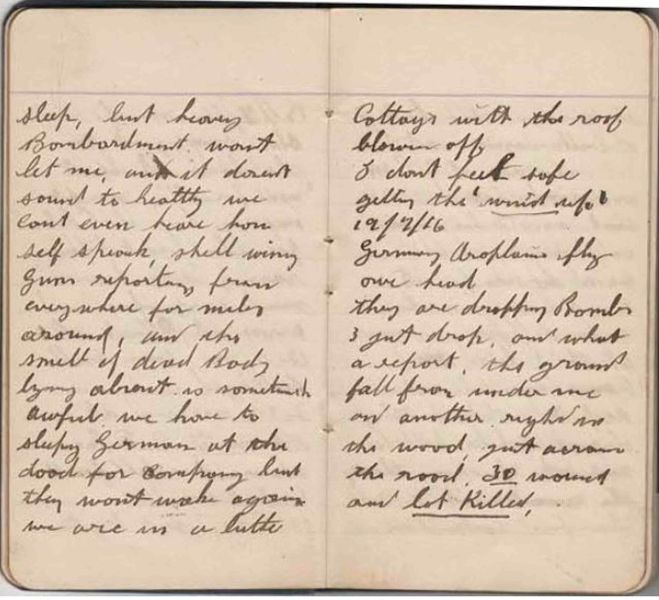 sleep, but heavy
Bombardment wont
let me, and it doesnt
sound to healthy we
cont even heare hou
self speak, shell wing
Guns reporting from
everywhere for miles
around, and the
smell of dead Body
lying about is something
awful we have to
sleepy German at the
dood for company but
they wont wake again
we are in a little
Cottage with the roof
blown off
I dont feel safe
getting the "wind up"
19/7/16
Germany Aroplains fly
ove head
they are dropping Bombs
3 just drop, and what
a report, the ground
fall from under me
and another right in
the wood, just across
the road. 30 wound
and lot Killed,